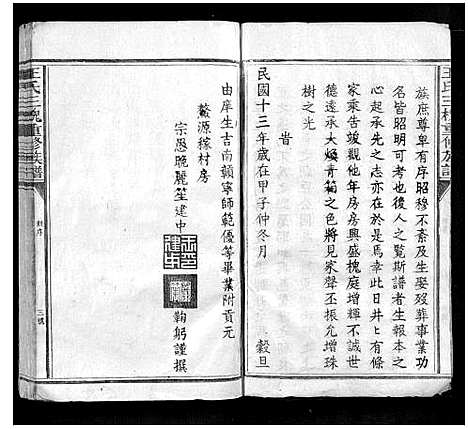 族庶尊卑有序昭穆不紊及生娶歿葬事業功
名皆昭明可考也後人之覧斯譜者生報本之
心起承先之志亦在於是焉幸此日井上有條
家乘告竣觀他年房房興盛槐庭增輝不誠世
德遠承大煥青箱之色將見家聲丕振允增珠
樹之光
旹
民國十三年歲在甲子仲冬月 穀旦
由庠生吉南贛寧師範優等畢業附貢元
鰲源稼村房
宗愚晚麗笙建中
鞠躬謹撰
王氏三槐重修族譜
三號